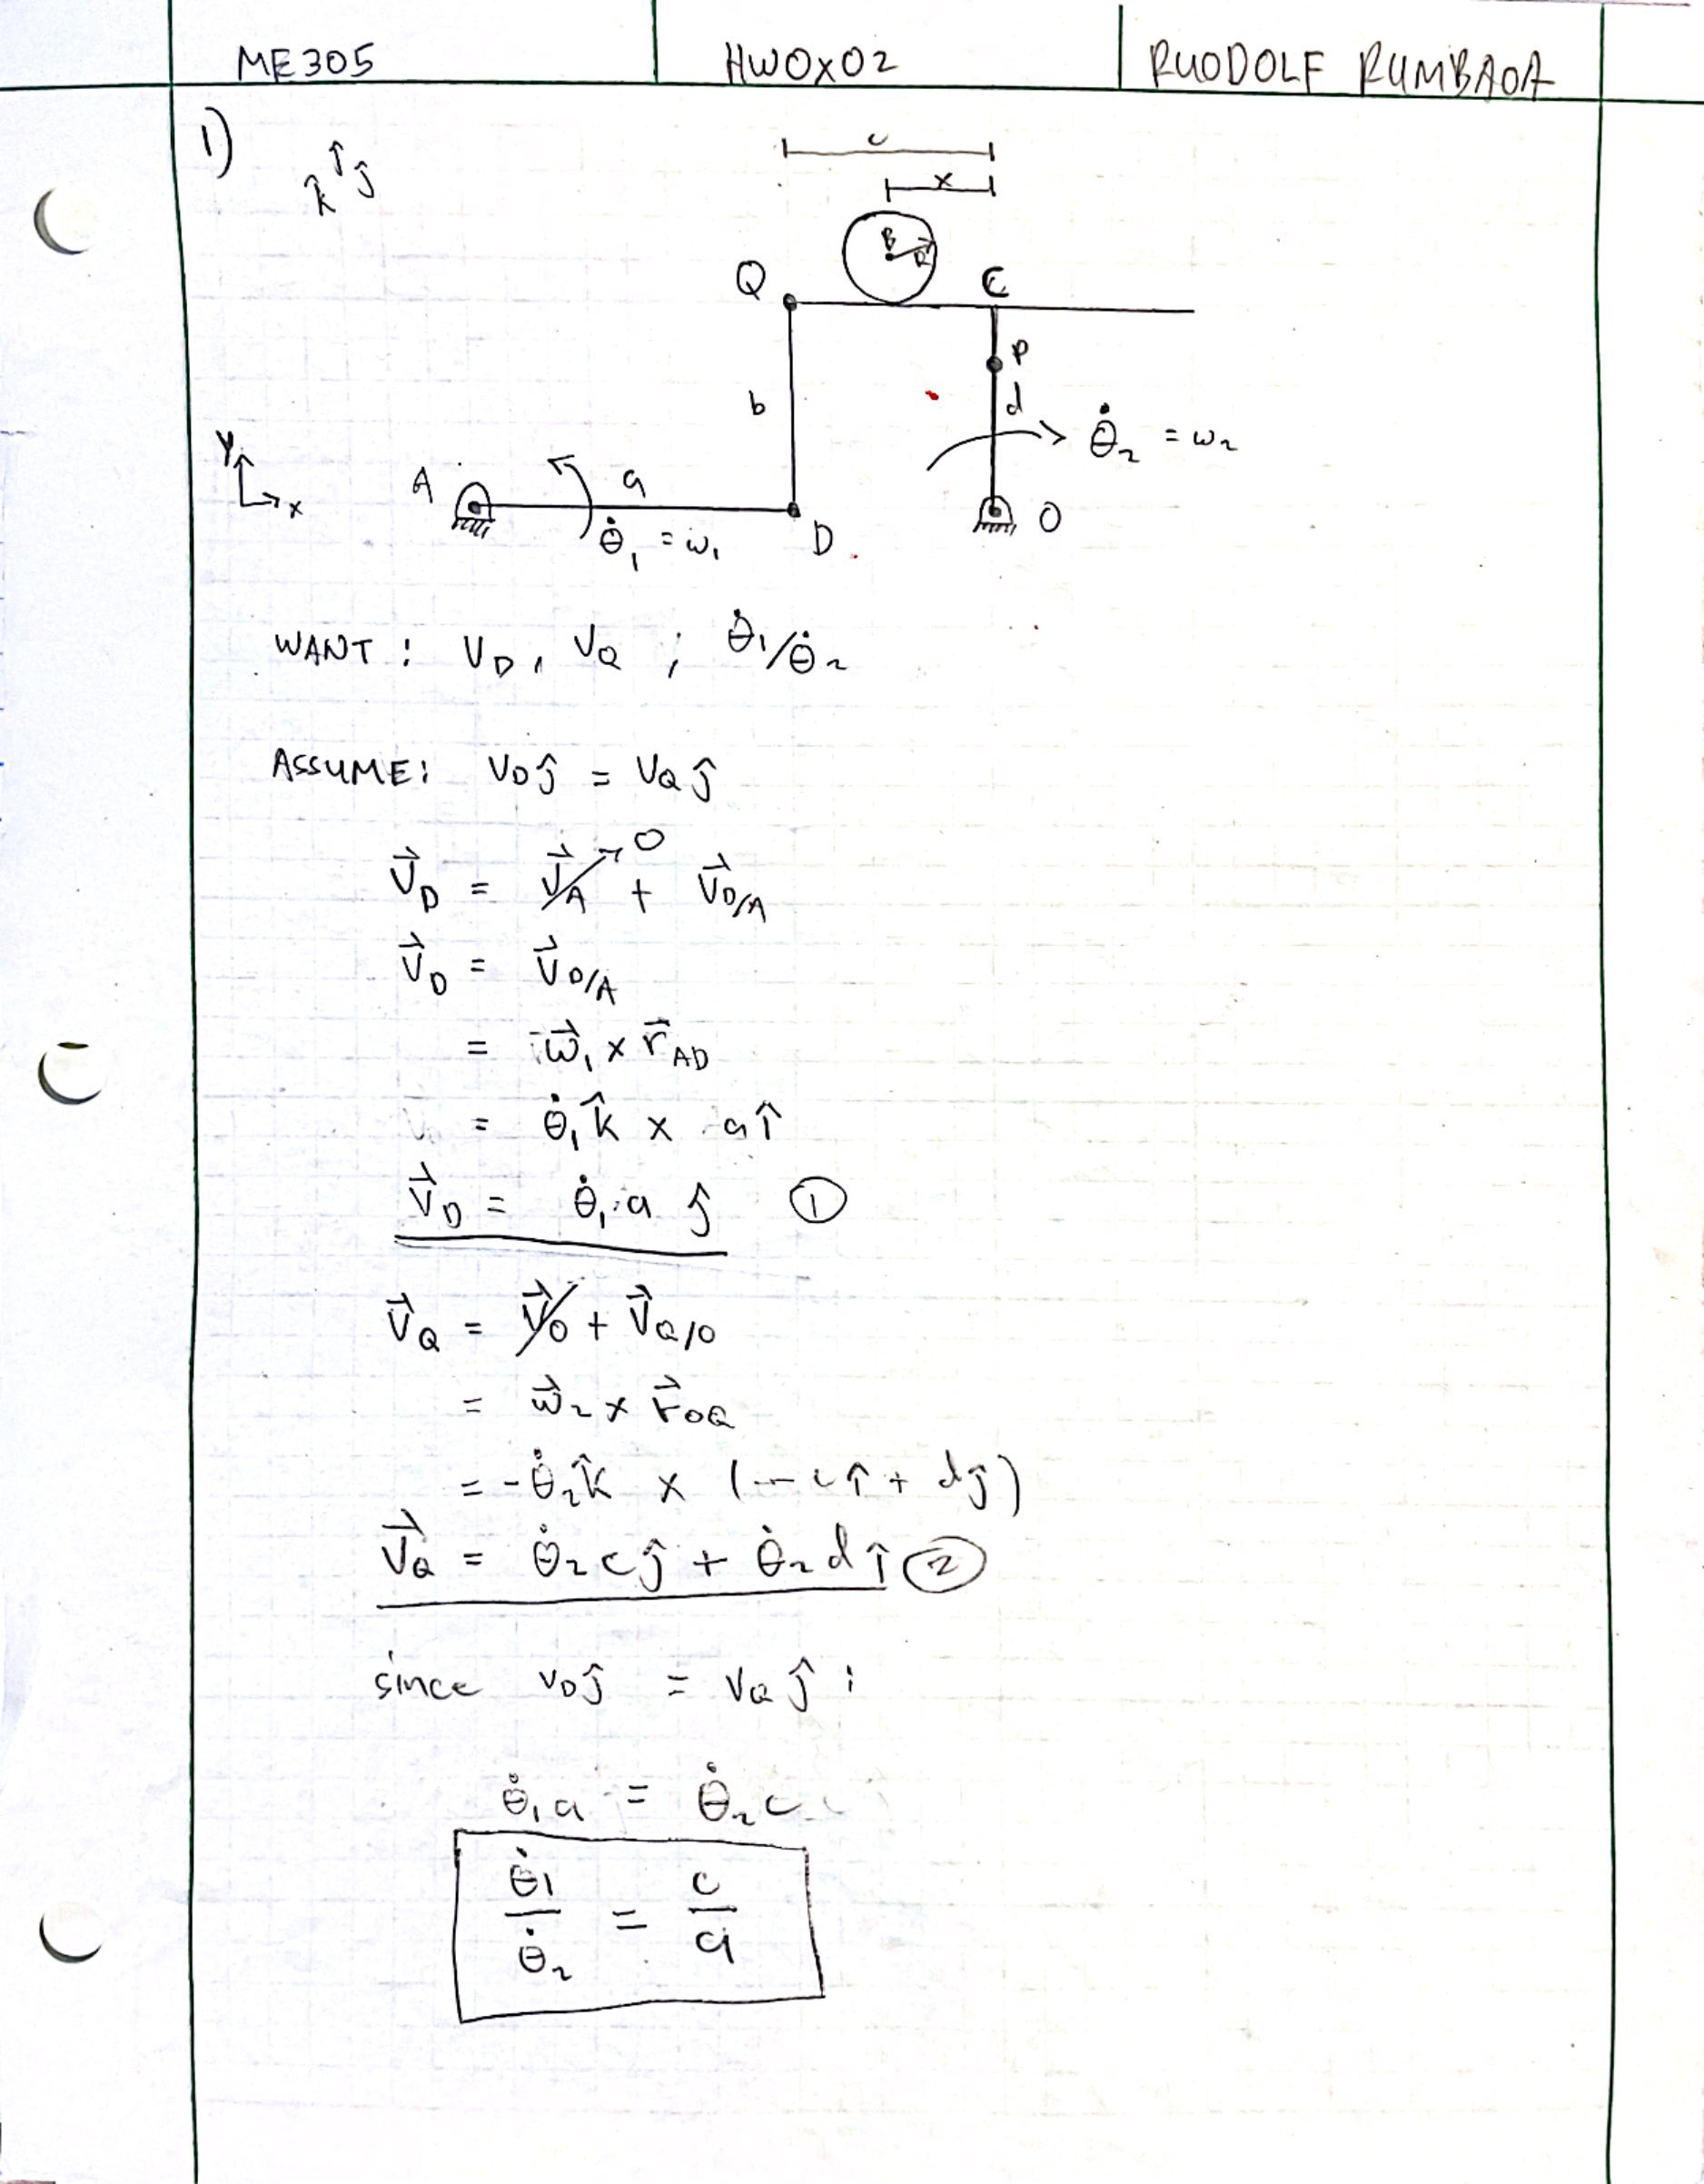 ME305 HW0x02 RUODOLF RUMBAOA
1)
k̂ ĵ
c
x
B R
Q C
P
b d
θ̇₂ = ω₂
Y
x
A a
θ̇₁ = ω₁ D O
WANT: V_D, V_Q ; θ̇₁/θ̇₂
ASSUME: V_D ĵ = V_Q ĵ
V⃗_D = V⃗_A → 0 + V⃗_D/A
V⃗_D = V⃗_D/A
= ω⃗₁ × r⃗_AD
= θ̇₁ k̂ × a î
V⃗_D = θ̇₁ a ĵ ①
V⃗_Q = V⃗_O + V⃗_Q/O
= ω⃗₂ × r⃗_OQ
= -θ̇₂ k̂ × (-c î + d ĵ)
V⃗_Q = θ̇₂ c ĵ + θ̇₂ d î ②
since V_D ĵ = V_Q ĵ :
θ̇₁ a = θ̇₂ c
θ̇₁/θ̇₂ = c/a